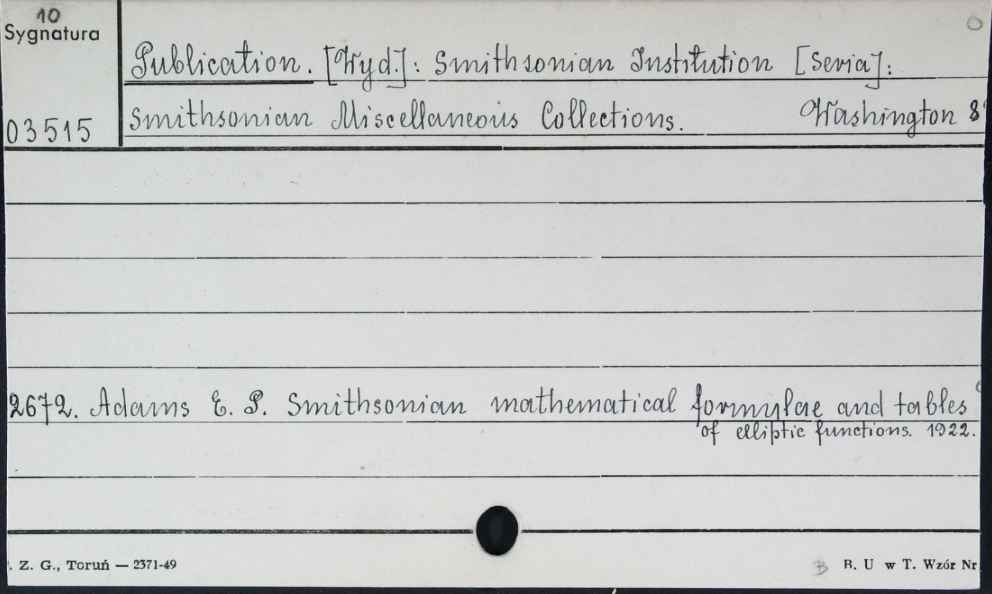 10
Sygnatura
03515
Publication. [Wyd.]: Smithsonian Institution [Seria]:
Smithsonian Miscellaneous Collections. Washington 8°
2672. Adams E. P. Smithsonian mathematical formulae and tables
of elliptic functions. 1922.
. Z. G., Toruń — 2371-49
B. U w T. Wzór Nr